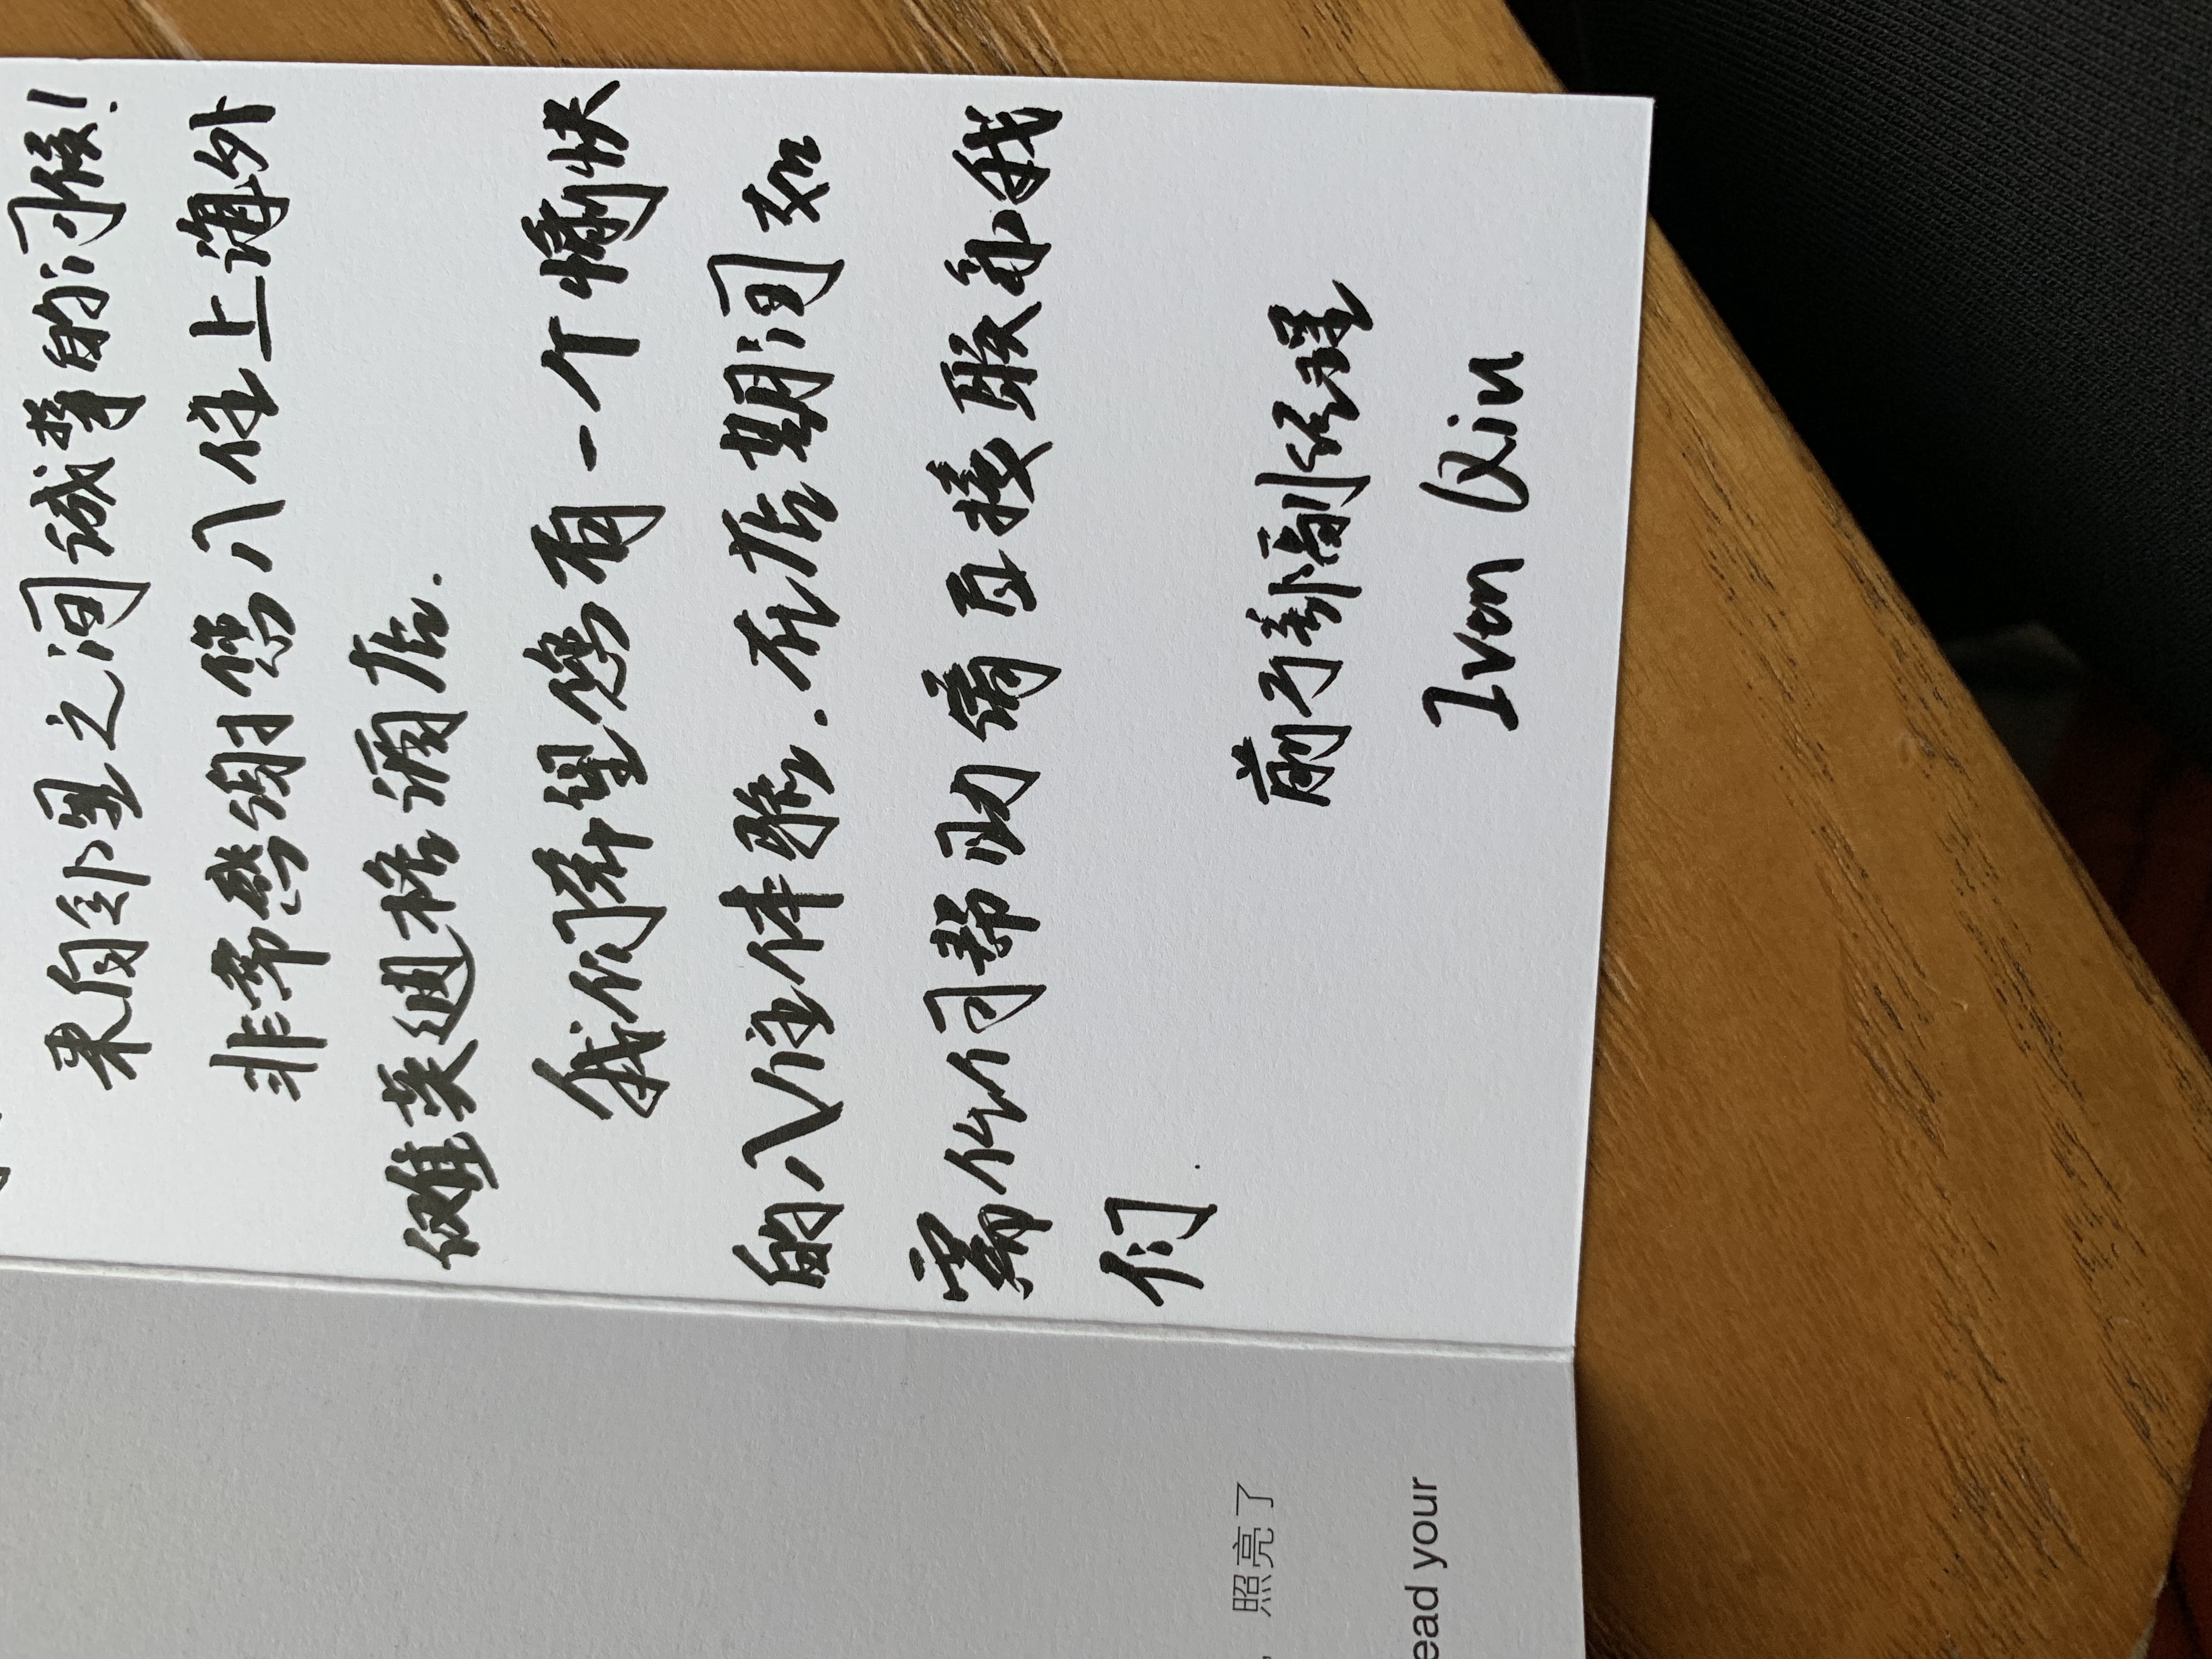 来自邻里之间诚挚的问候!
非常感谢您入住上海外
滩英迪格酒店.
我们希望您有一个愉快
的入住体验.在店期间如
需任何帮助请直接联系我
们.
前厅部副经理
Iven Qiu
，照亮了
ead your